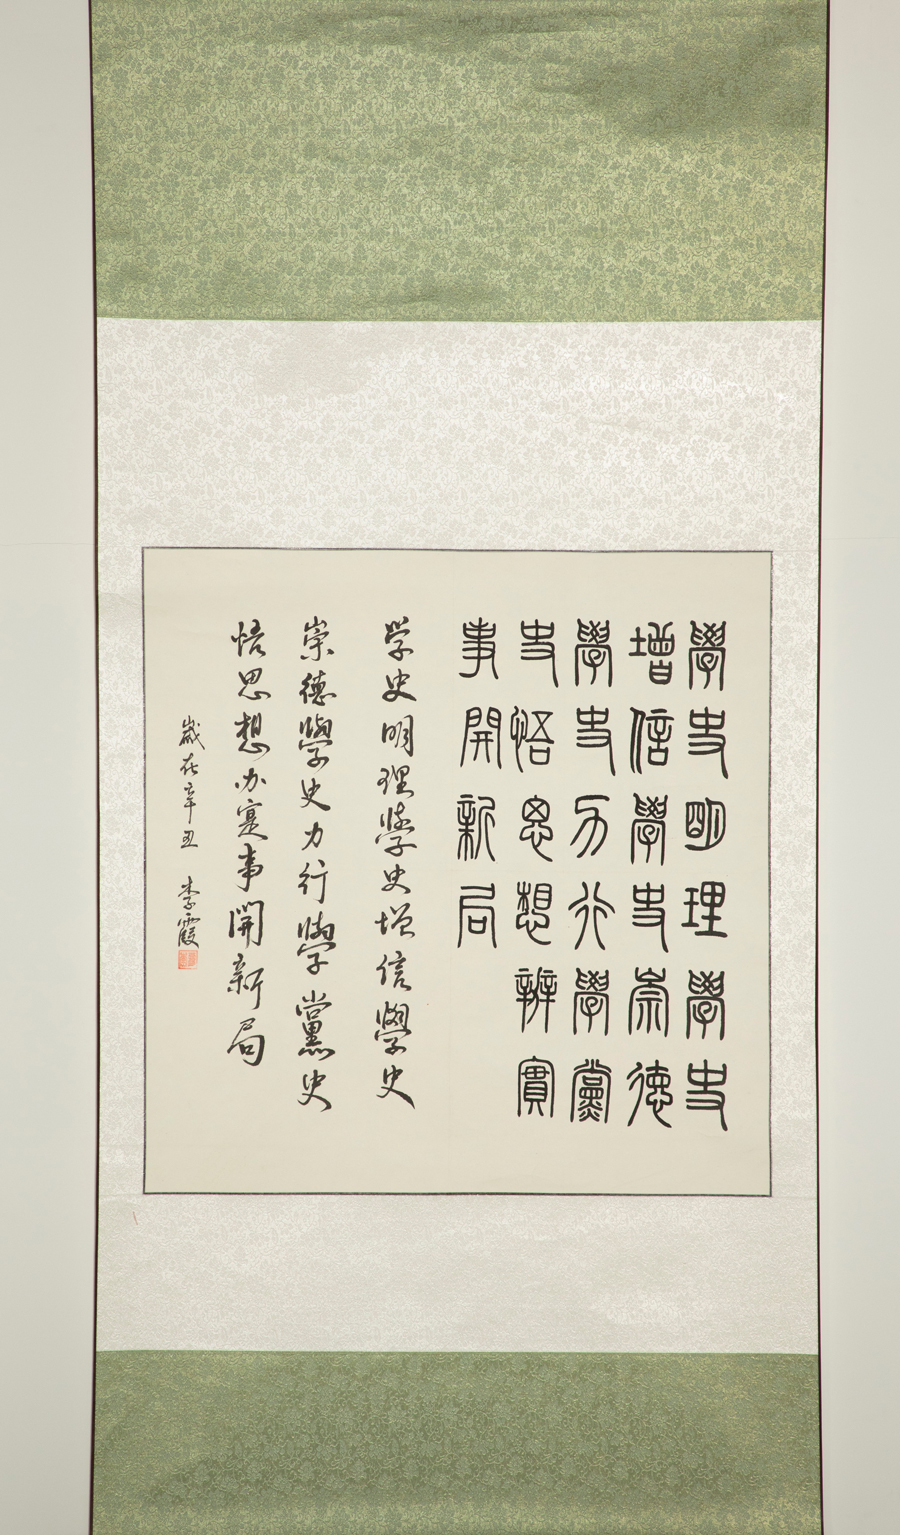 學史明理學史
增信學史崇德
學史力行學黨
史悟思想辦實
事開新局
学史明理學史增信學史
崇德學史力行學黨史
悟思想办寔事開新局
歲在辛丑 李霞